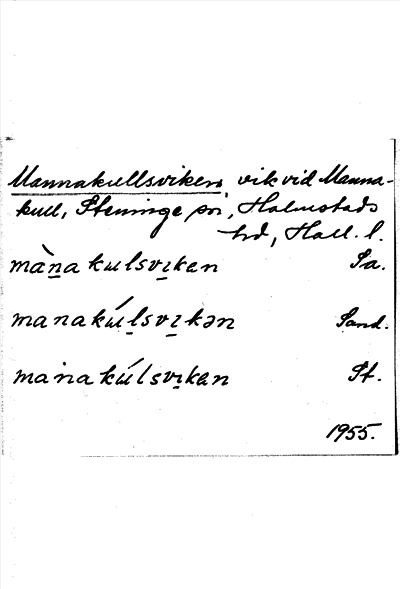 Mannakullsviken, vik vid Manna-
kull, Steninge sn, Halmstads
hd, Hall. l.
màn̲akulsvi̲kan Sa.
manakúl̲svi̲kən Sand.
manakúlsvi̲kan St.
1955.